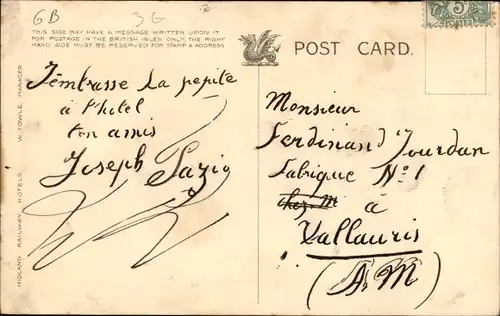 6B
3G
THIS SIDE MAY HAVE A MESSAGE WRITTEN UPON IT
FOR POSTAGE IN THE BRITISH ISLES ONLY. THE RIGHT
HAND SIDE MUST BE RESERVED FOR STAMP & ADDRESS
POST CARD.
J'embrasse la pepite
à l'hotel
ton amis
Joseph
Monsieur
Ferdinand Jourdan
Fabrique No 1
chez M
à
Vallauris
(A.M)
MIDLAND RAILWAY HOTELS. W. TOWLE, MANAGER
5